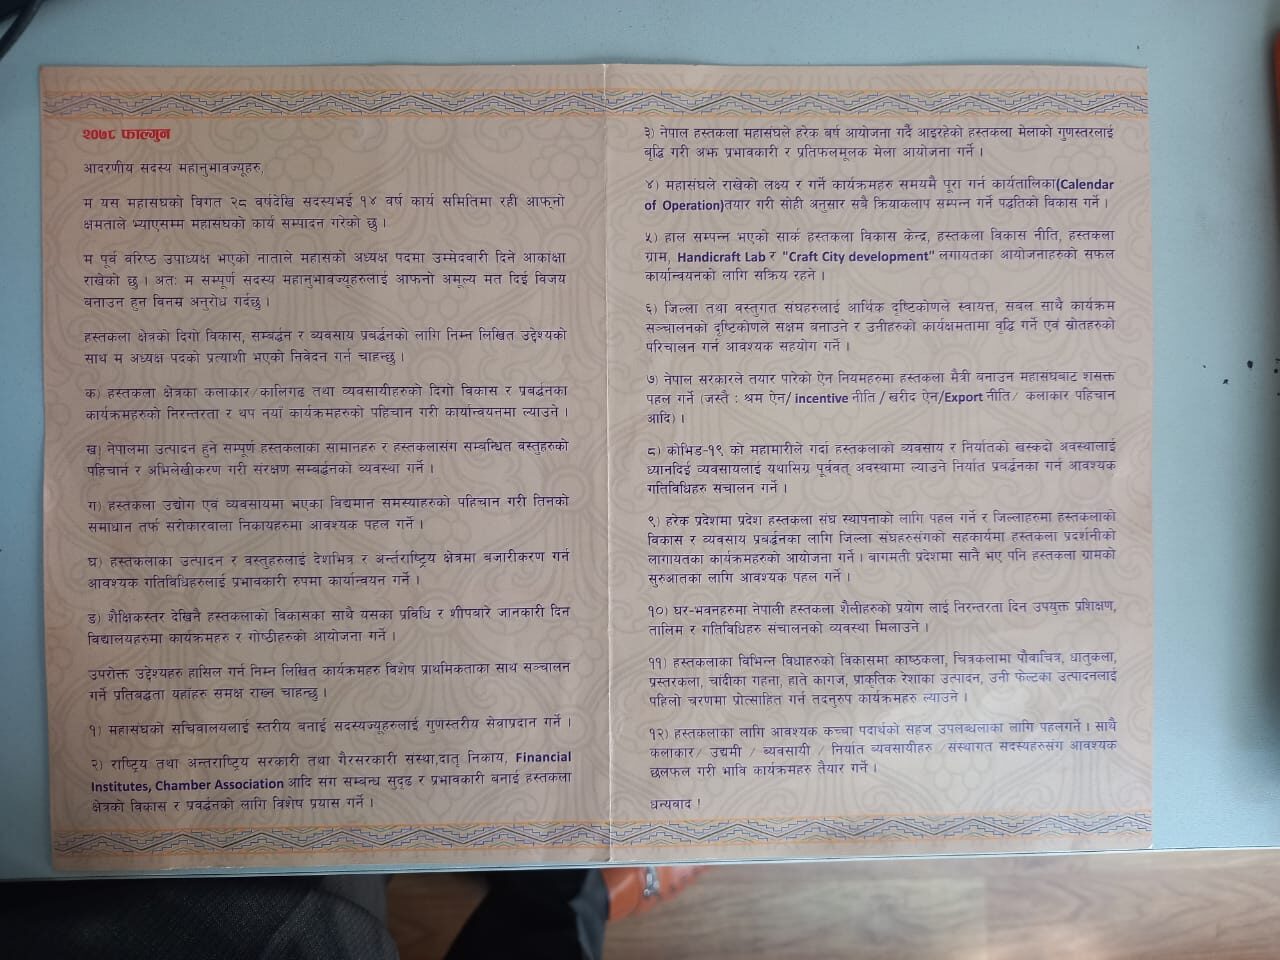 २०७८ फाल्गुन
आदरणीय सदस्य महानुभावज्यूहरु,
म यस महासंघको विगत २८ वर्षदेखि सदस्यभई १४ वर्ष कार्य समितिमा रही आफ्नो
क्षमताले भ्याएसम्म महासंघको कार्य सम्पादन गरेको छु ।
म पूर्व वरिष्ठ उपाध्यक्ष भएको नाताले महासंको अध्यक्ष पदमा उम्मेदवारी दिने आकांक्षा
राखेको छु । अतः म सम्पूर्ण सदस्य महानुभावज्यूहरुलाई आफ्नो अमूल्य मत दिई विजय
बनाउन हुन विनम्र अनुरोध गर्दछु ।
हस्तकला क्षेत्रको दिगो विकास, सम्बर्द्धन र व्यवसाय प्रबर्द्धनको लागि निम्न लिखित उद्देश्यको
साथ म अध्यक्ष पदको प्रत्याशी भएको निवेदन गर्न चाहन्छु ।
क) हस्तकला क्षेत्रका कलाकार/कालिगढ तथा व्यवसायीहरुको दिगो विकास र प्रबर्द्धनका
कार्यक्रमहरुको निरन्तरता र थप नयाँ कार्यक्रमहरुको पहिचान गरी कार्यान्वयनमा ल्याउने ।
ख) नेपालमा उत्पादन हुने सम्पूर्ण हस्तकलाका सामानहरु र हस्तकलासंग सम्बन्धित वस्तुहरुको
पहिचान र अभिलेखीकरण गरी संरक्षण सम्बर्द्धनको व्यवस्था गर्ने ।
ग) हस्तकला उद्योग एवं व्यवसायमा भएका विद्यमान समस्याहरुको पहिचान गरी तिनको
समाधान तर्फ सरोकारवाला निकायहरुमा आवश्यक पहल गर्ने ।
घ) हस्तकलाका उत्पादन र वस्तुहरुलाई देशभित्र र अर्न्तराष्ट्रिय क्षेत्रमा बजारीकरण गर्न
आवश्यक गतिविधिहरुलाई प्रभावकारी रुपमा कार्यान्वयन गर्ने ।
ङ) शैक्षिकस्तर देखिनै हस्तकलाको विकासका साथै यसका प्रविधि र शीपबारे जानकारी दिन
विद्यालयहरुमा कार्यक्रमहरु र गोष्ठीहरुको आयोजना गर्ने ।
उपरोक्त उद्देश्यहरु हासिल गर्न निम्न लिखित कार्यक्रमहरु विशेष प्राथमिकताका साथ सञ्चालन
गर्ने प्रतिबद्धता यहाँहरु समक्ष राख्न चाहन्छु ।
१) महासंघको सचिवालयलाई स्तरीय बनाई सदस्यज्यूहरुलाई गुणस्तरीय सेवाप्रदान गर्ने ।
२) राष्ट्रिय तथा अन्तराष्ट्रिय सरकारी तथा गैरसरकारी संस्था,दातृ निकाय, Financial
Institutes, Chamber Association आदि संग सम्बन्ध सुदृढ र प्रभावकारी बनाई हस्तकला
क्षेत्रको विकास र प्रवर्द्धनको लागि विशेष प्रयास गर्ने ।
३) नेपाल हस्तकला महासंघले हरेक वर्ष आयोजना गर्दै आइरहेको हस्तकला मेलाको गुणस्तरलाई
बृद्धि गरी अझ प्रभावकारी र प्रतिफलमूलक मेला आयोजना गर्ने ।
४) महासंघले राखेको लक्ष्य र गर्ने कार्यक्रमहरु समयमै पूरा गर्न कार्यतालिका(Calendar
of Operation)तयार गरी सोही अनुसार सबै क्रियाकलाप सम्पन्न गर्ने पद्धतिको विकास गर्ने ।
५) हाल सम्पन्न भएको सार्क हस्तकला विकास केन्द्र, हस्तकला विकास नीति, हस्तकला
ग्राम, Handicraft Lab र "Craft City development" लगायतका आयोजनाहरुको सफल
कार्यान्वयनको लागि सक्रिय रहने ।
६) जिल्ला तथा वस्तुगत संघहरुलाई आर्थिक दृष्टिकोणले स्वायत्त, सबल साथै कार्यक्रम
सञ्चालनको दृष्टिकोणले सक्षम बनाउने र उनीहरुको कार्यक्षमतामा वृद्धि गर्ने एवं स्रोतहरुको
परिचालन गर्न आवश्यक सहयोग गर्ने ।
७) नेपाल सरकारले तयार पारेको ऐन नियमहरुमा हस्तकला मैत्री बनाउन महासंघबाट शसक्त
पहल गर्ने (जस्तै : श्रम ऐन/ incentive नीति / खरीद ऐन/Export नीति/ कलाकार पहिचान
आदि) ।
८) कोभिड-१९ को महामारीले गर्दा हस्तकलाको व्यवसाय र निर्यातको खस्कदो अवस्थालाई
ध्यानदिई व्यवसायलाई यथासिग्र पूर्ववत् अवस्थामा ल्याउने निर्यात प्रबर्द्धनका गर्न आवश्यक
गतिविधिहरु संचालन गर्ने ।
९) हरेक प्रदेशमा प्रदेश हस्तकला संघ स्थापनाको लागि पहल गर्ने र जिल्लाहरुमा हस्तकलाको
विकास र व्यवसाय प्रबर्द्धनका लागि जिल्ला संघहरुसंगको सहकार्यमा हस्तकला प्रदर्शनीको
लागायतका कार्यक्रमहरुको आयोजना गर्ने । बागमती प्रदेशमा सानै भए पनि हस्तकला ग्रामको
सुरुआतका लागि आवश्यक पहल गर्ने ।
१०) घर-भवनहरुमा नेपाली हस्तकला शैलीहरुको प्रयोग लाई निरन्तरता दिन उपयुक्त प्रशिक्षण,
तालिम र गतिविधिहरु संचालनको व्यवस्था मिलाउने ।
११) हस्तकलाका विभिन्न विधाहरुको विकासमा काष्ठकला, चित्रकलामा पौवाचित्र, धातुकला,
प्रस्तरकला, चाँदीका गहना, हाते कागज, प्राकृतिक रेशाका उत्पादन, उनी फेल्टका उत्पादनलाई
पहिलो चरणमा प्रोत्साहित गर्न तदनुरुप कार्यक्रमहरु ल्याउने ।
१२) हस्तकलाका लागि आवश्यक कच्चा पदार्थको सहज उपलब्धलाका लागि पहलगर्ने । साथै
कलाकार/ उद्यमी / ब्यवसायी / निर्यात ब्यवसायीहरु /संस्थागत सदस्यहरुसंग आवश्यक
छलफल गरी भावि कार्यक्रमहरु तैयार गर्ने ।
धन्यवाद !